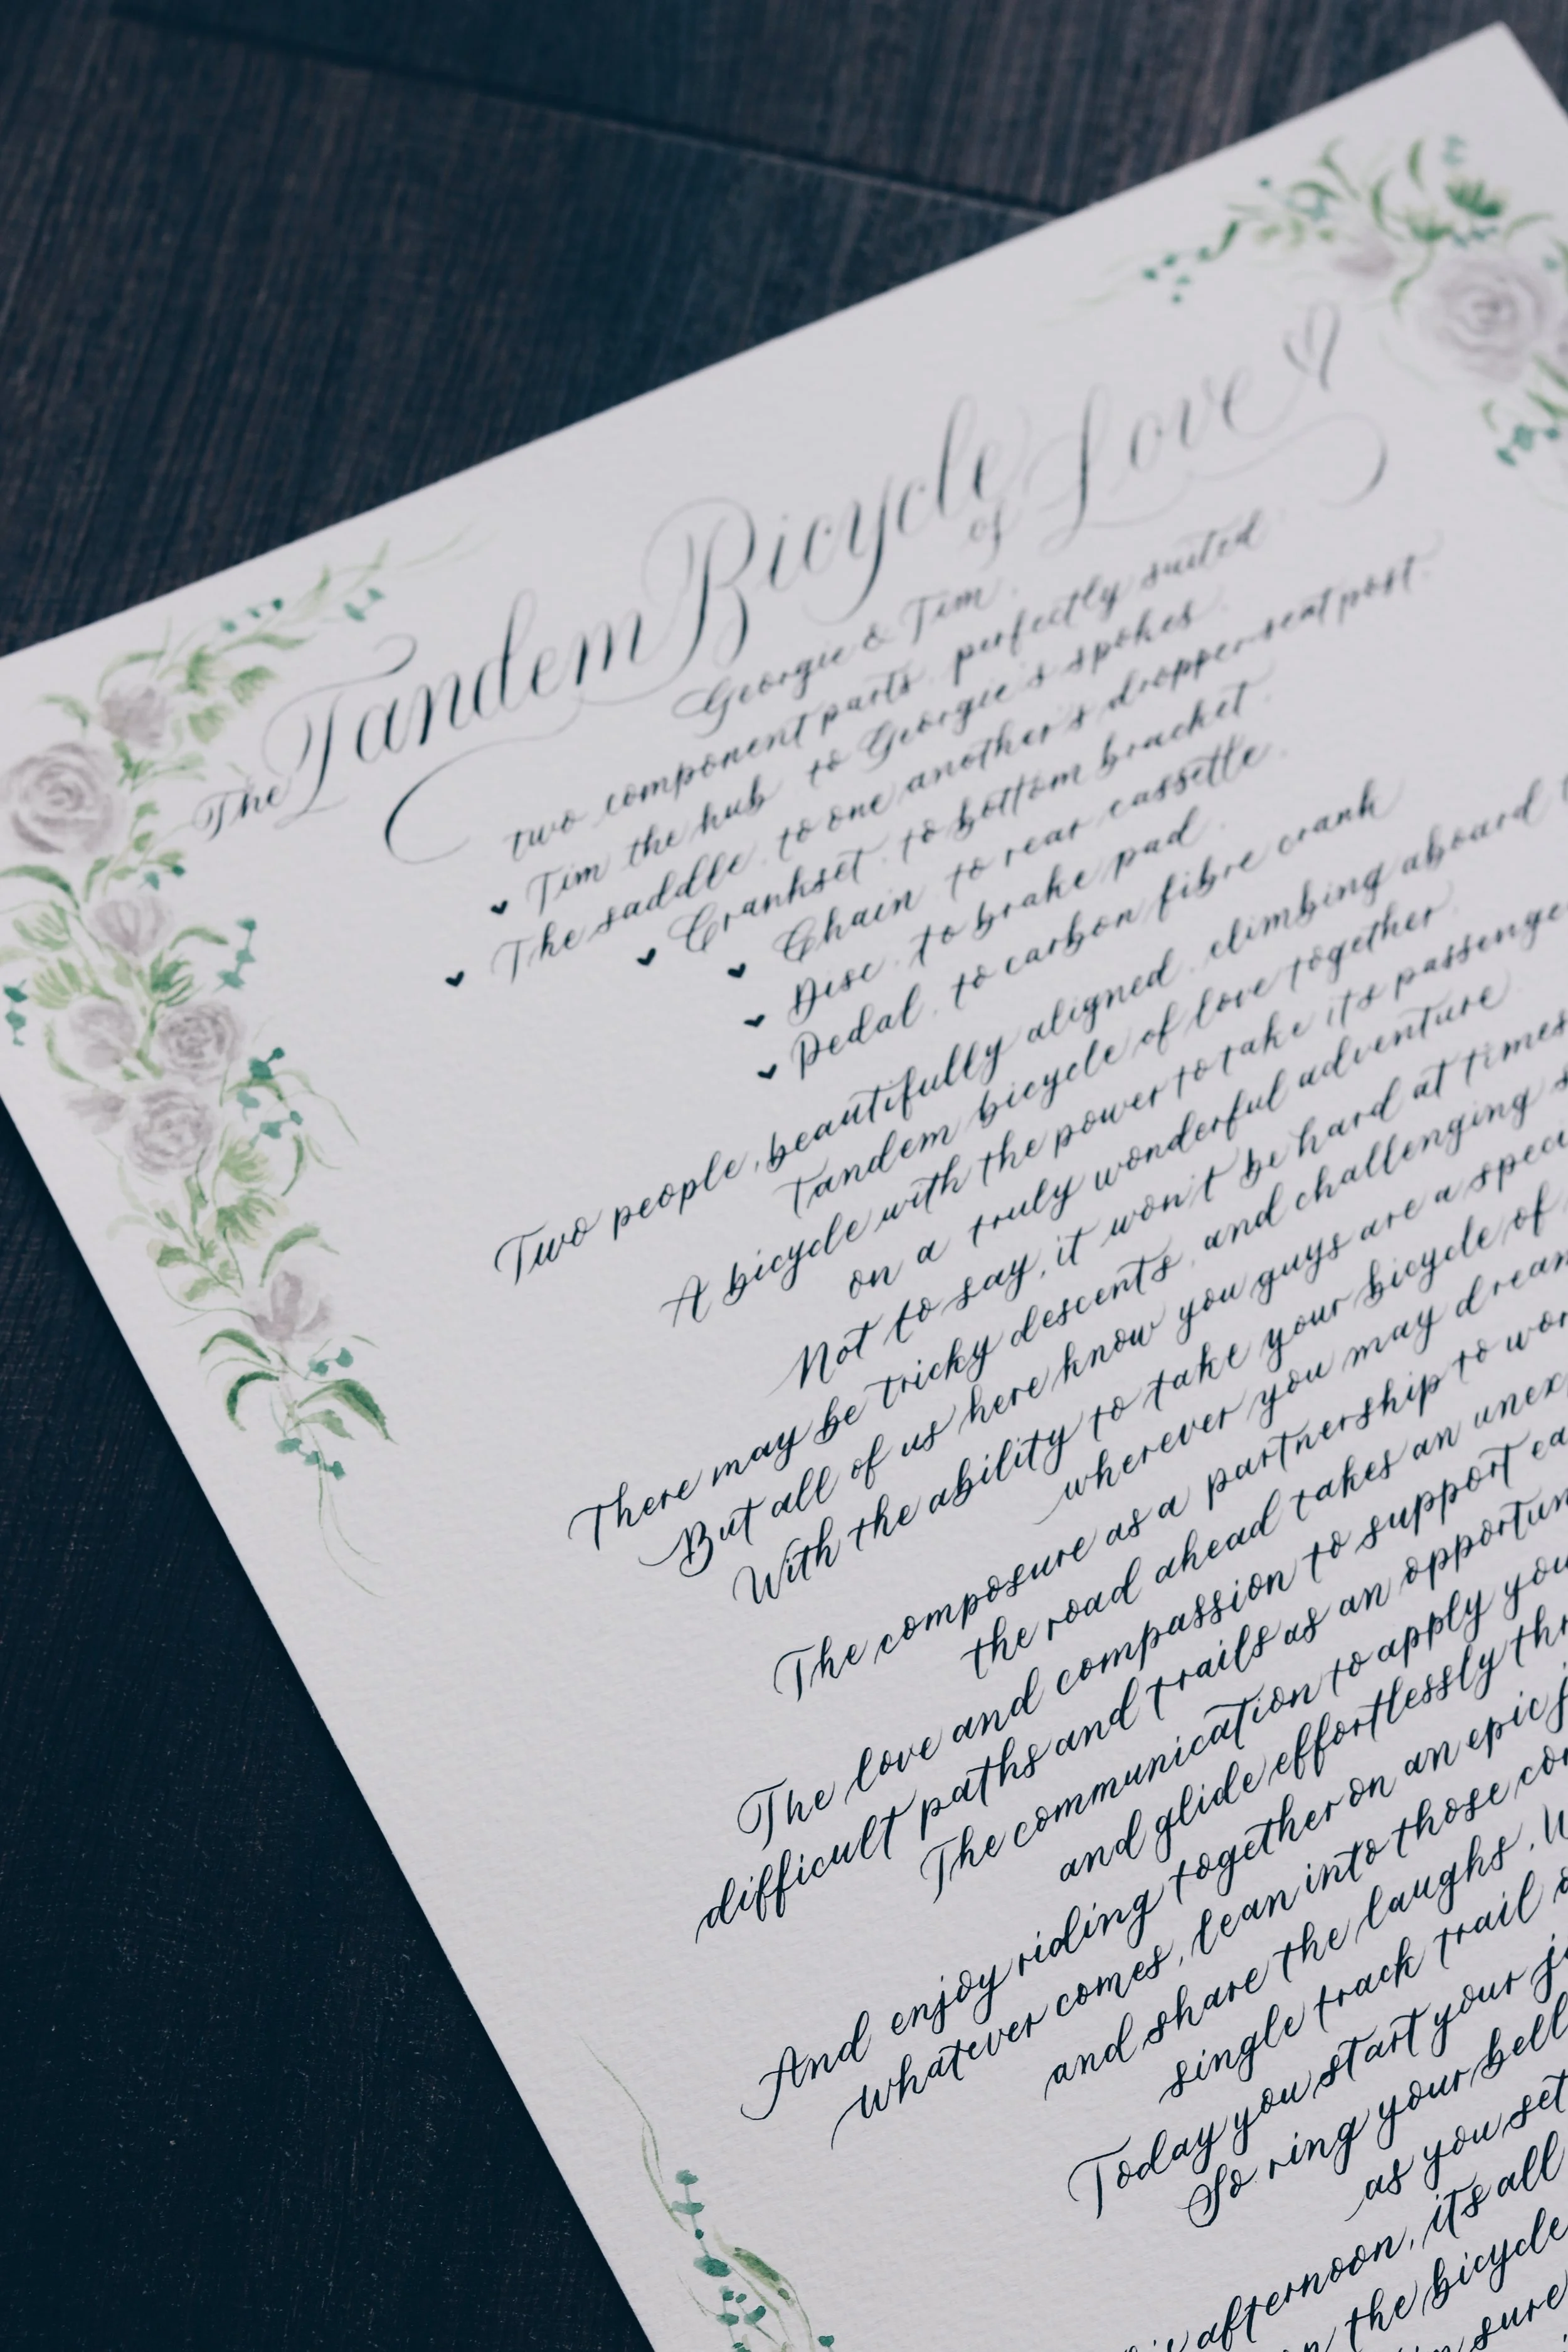 The Tandem Bicycle of Love
Georgie & Tim.
two component parts, perfectly suited
Tim the hub, to Georgie's spokes.
The saddle, to one another's dropper-seat post.
Crankset, to bottom bracket.
Chain, to rear cassette.
Disc, to brake pad.
Pedal, to carbon fibre crank
Two people, beautifully aligned, climbing aboard
Tandem bicycle of love together.
A bicycle with the power to take it's passenge
on a truly wonderful adventure.
Not to say, it won't be hard at times
There may be tricky descents, and challenging
But all of us here know you guys are a spec
With the ability to take your bicycle of
wherever you may drea
The composure as a partnership to wo
the road ahead takes an unex
The love and compassion to support ea
difficult paths and trails as an opportun
The communication to apply you
and glide effortlessly thr
And enjoy riding together on an epic j
whatever comes, lean into those co
and share the laughs. W
single track trail
Today you start your j
So ring your bell
as you set
afternoon, it's all
the bicycle
sure